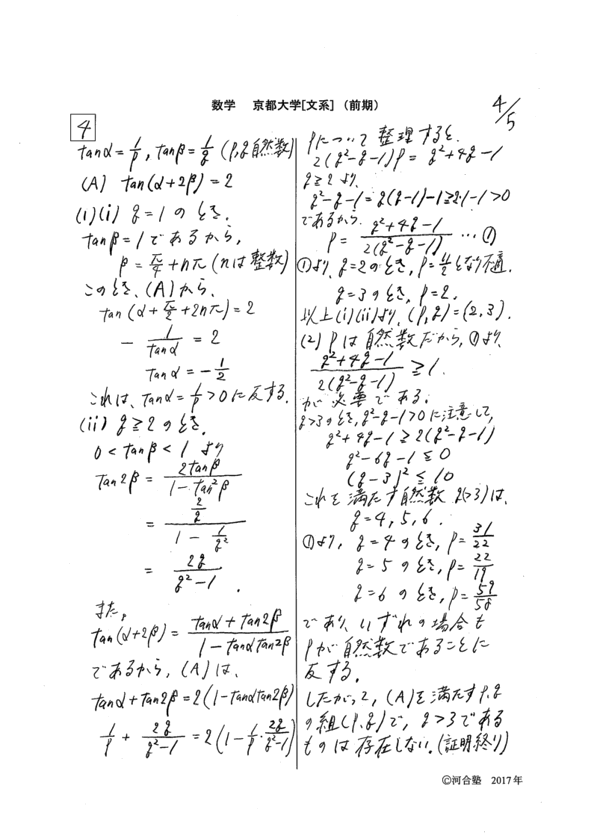 数学 京都大学[文系](前期)
4/5
4
tanα=1/p, tanβ=1/q (p,q自然数)
(A) tan(α+2β)=2
(1)(i) q=1のとき.
tanβ=1であるから,
β=π/4+nπ (nは整数)
このとき, (A)から,
tan(α+π/2+2nπ)=2
-1/tanα=2
tanα=-1/2
これは, tanα=1/p>0に反する.
(ii) q≧2のとき.
0<tanβ<1 より
tan2β=2tanβ/(1-tan²β)
=(2/q)/(1-1/q²)
=2q/(q²-1).
また,
tan(α+2β)=(tanα+tan2β)/(1-tanαtan2β)
であるから, (A)は,
tanα+tan2β=2(1-tanαtan2β)
1/p+2q/(q²-1)=2(1-1/p・2q/(q²-1))
pについて整理すると.
2(q²-q-1)p=q²+4q-1
q≧2より,
q²-q-1=q(q-1)-1≧2・1-1>0
であるから,
p=(q²+4q-1)/(2(q²-q-1)) …①
①より, q=2のとき, p=11/2となり不適.
q=3のとき, p=2.
以上(i)(ii)より, (p,q)=(2,3).
(2) pは自然数だから, ①より,
(q²+4q-1)/(2(q²-q-1))≧1.
が必要である.
q>3のとき, q²-q-1>0に注意して,
q²+4q-1≧2(q²-q-1)
q²-6q-1≦0
(q-3)²≦10
これを満たす自然数q(>3)は,
q=4,5,6.
①より, q=4のとき, p=31/22
q=5のとき, p=22/19
q=6のとき, p=59/58
であり, いずれの場合も
pが自然数であることに
反する.
したがって, (A)を満たすp,q
の組(p,q)で, q>3である
ものは存在しない. (証明終り)
©河合塾 2017年